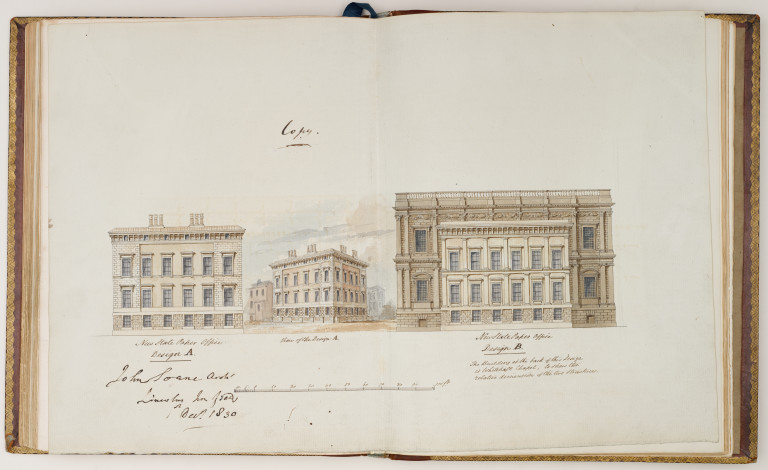 Copy.
New State Paper Office
Design A.
View of the Design A.
New State Paper Office
Design B.
The Building at the back of this Design
is Whitehall Chapel, to shew the
relative dimensions of the two Structures
John Soane Archt
Lincolns Inn fields
1st Decr. 1830